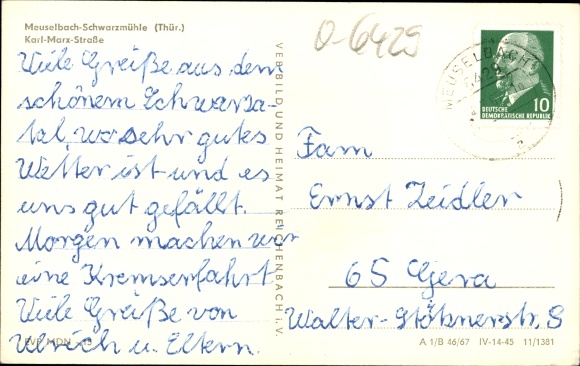 Meuselbach-Schwarzmühle (Thür.)
Karl-Marx-Straße
Viele Grüße aus dem
schönem Schwarza-
tal, wo sehr gutes
Wetter ist und es
uns gut gefällt.
Morgen machen wir
eine Kremserfahrt
Viele Grüße von
Ulrich u. Eltern.
EVP MDN
VEB BILD UND HEIMAT REICHENBACH I. V.
O-6429
MEUSELBACH
6429
10
DEUTSCHE
DEMOKRATISCHE REPUBLIK
Fam
Ernst Zeidler
65 Gera
Walter-
A 1/B 46/67 IV-14-45 11/1381